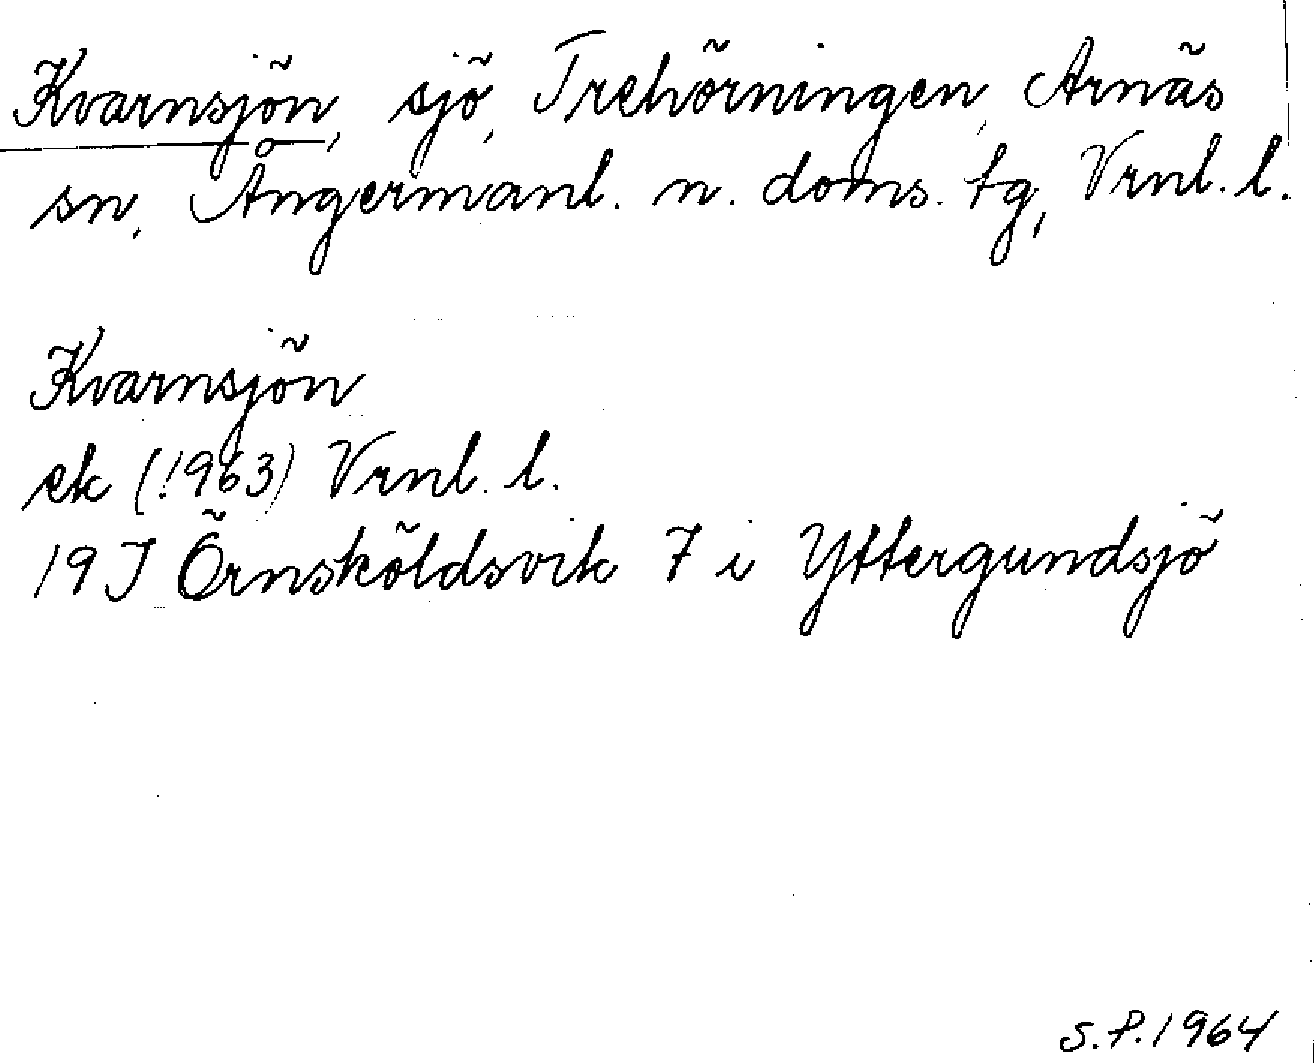 Kvarnsjön, sjö, Trehörningen, Arnäs
sn, Ångermanl. n. doms. tg, Vrnl. l.
Kvarnsjön
ek (1963) Vrnl. l.
19J Örnsköldsvik 7 i Yttergundsjö
S.P. 1964